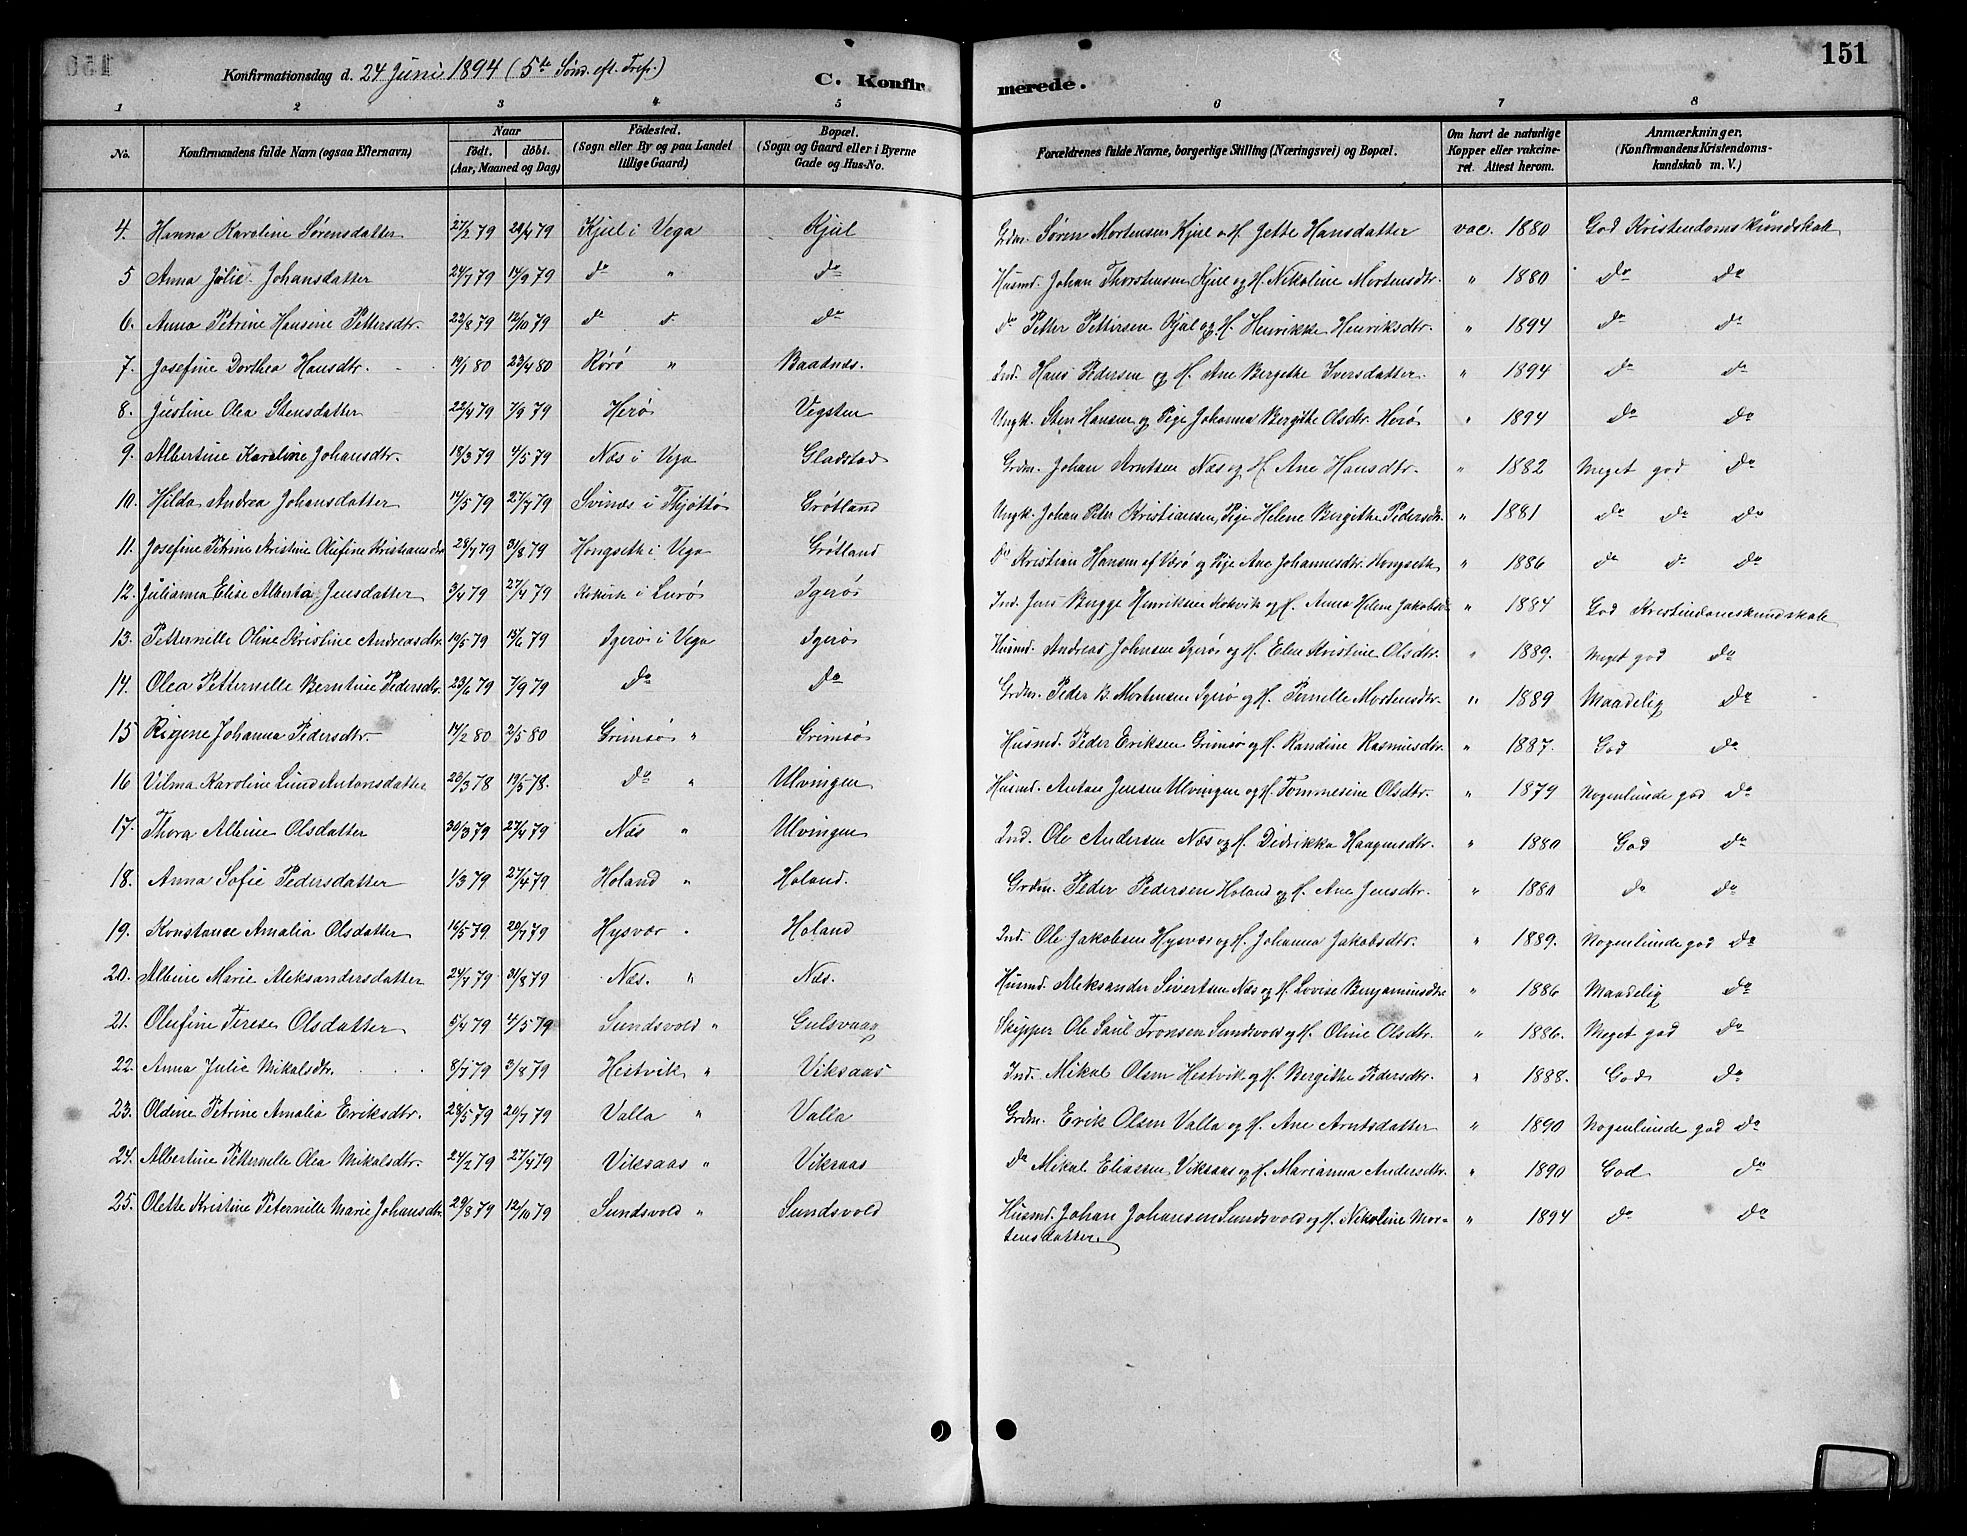 151
Konfirmationsdag d. 24 Juni 1894 (5te Sønd. eft. Tref.)
C. Konfirmerede.
1 2 3 4 5 6 7 8
No. Konfirmandens fulde Navn (ogsaa Efternavn) Naar født. døbt. (Aar, Maaned og Dag) Fødested. (Sogn eller By og paa Landet tillige Gaard) Bopæl. (Sogn og Gaard eller i Byerne Gade og Hus-No. Forældrenes fulde Navne, borgerlige Stilling (Næringsvei) og Bopæl. Om havt de naturlige Kopper eller vakcineret. Attest herom. Anmærkninger. (Konfirmandens Kristendomskundskab m. V.)
4. Hanna Karoline Sørensdatter 27/2 79 28/4 79 Kjul i Vega Kjul Grdm. Søren Mortensen Kjul o H. Jette Hansdatter vac. 1880 God Kristendomskundskab
5 Anna Julie Johansdatter 24/7 79 14/9 79 do " do Husmd. Johan Thorstensen Kjul og H. Nikoline Mortensdtr. " 1880 do do
6. Anna Petrine Hansine Pettersdtr. 22/8 79 12/10 79 do d. do do Petter Pettersen Kjul og H. Henrikke Henriksdtr. " 1894 do do
7. Josefine Dorthea Hansdtr. 19/1 80 23/4 80 Rørø " Baadnes. Ind. Hans Pedersen og H. Ane Bergithe Iversdatter. " 1894 do do
8. Justine Olea Stensdatter 22/4 79 7/9 79 Herø Vegsten Ungk. Sten Hansen og Pige Johanna Bergithe Olsdtr. Herø " 1894 do do
9. Albertine Karoline Johansdtr. 18/3 79 4/5 79 Næs i Vega Gladstad Grdm. Johan Arntsen Næs og H. Ane Hansdtr. " 1882 Meget god do
10. Hilda Andrea Johansdatter 14/5 79 27/7 79 Svinæs i Thjøttø Grøtland Ungk. Johan Peter Kristiansen, Pige Helene Bergithe Pedersdtr. " 1881 do do do
11. Josefine Petrine Kristine Olufine Kristiansdtr 28/7 79 31/8 79 Hongseth i Vega Grøtland do Kristian Hansen af Værø og Pige Ane Johannesdtr. Hongseth " 1886 do do do
12. Julianna Elise Alberta Jensdatter 3/4 79 27/4 79 Kokvik i Lurø Igerø Ind. Jens Bugge Henriksen Kokvik og H. Anna Helene Jakobsd. " 1884 God Kristendomskundskab
13. Petternille Oline Kristine Andreasdtr. 19/5 79 15/6 79 Igerø i Vega Igerø Husmd. Andreas Johnsen Igerø og H. Elen Kristine Olsdtr. " 1889. Meget god do
14. Olea Petternelle Berntine Pedersdtr. 23/6 79 7/9 79 do do Grdm. Peder B. Mortensen Igerø og H. Pernille Mortensdtr. " 1889 Maadelig do
15 Rigene Johanna Pedersdtr. 14/2 80 2/5 80 Grimsø " Grimsø Husmd. Peder Eriksen Grimsø og H. Randine Rasmusdtr. " 1887. God do
16 Vilma Karoline Lund Antonsdatter 28/3 78 19/5 78. do " Ulvingen Husmd. Anton Jensen Ulvingen og H. Tommesine Olsdtr. " 1879 Nogenlunde god do
17. Thora Albine Olsdatter 30/3 79 27/4 79 Næs " Ulvingen Ind. Ole Andersen Næs og H. Didrikka Haagensdtr. " 1880 God do
18. Anna Sofie Pedersdatter 1/3 79 27/4 79 Holand " Holand. Grdm. Peder Pedersen Holand og H. Ane Jensdtr. " 1880 do do
19. Konstance Amalia Olsdatter 16/5 79 20/7 79 Hysvær " Holand Ind. Ole Jakobsen Hysvær og H. Johanna Jakobsdtr. " 1889. Nogenlunde god do
20. Albine Marie Aleksandersdatter 24/7 79 31/8 79 Næs. " Næs. Husmd. Aleksander Sivertsen Næs og H. Lovise Benjaminsdtr " 1886 Maadelig do
21. Olufine Terese Olsdatter 5/4 79 4/5 79 Sundsvold " Gulsvaag Skipper Ole Saul Tronsen Sundsvold og H. Oline Olsdtr. " 1886. Meget god do
22. Anna Julie Mikalsdtr. 8/7 79 3/8 79 Hestvik " Viksaas Ind. Mikal Olsen Hestvik og H. Bergithe Pedersdtr. " 1888. God do
23. Oldine Petrine Amalia Eriksdtr. 28/5 79 20/7 79 Valla " Valla Grdm. Erik Olsen Valla og H. Ane Arntsdatter " 1890 Nogenlunde god do
24. Albertine Petternelle Olea Mikalsdtr. 24/2 79 27/4 79 Viksaas " Viksaas do Mikal Eliassen Viksaas og H. Marianna Andersdtr. " 1890 God do
25. Olette Kristine Peternille Marie Johansdtr. 29/8 79 12/10 79 Sundsvold " Sundsvold Husmd. Johan Johansen Sundsvold og H. Nikoline Mor-
tensdatter. " 1894 do do